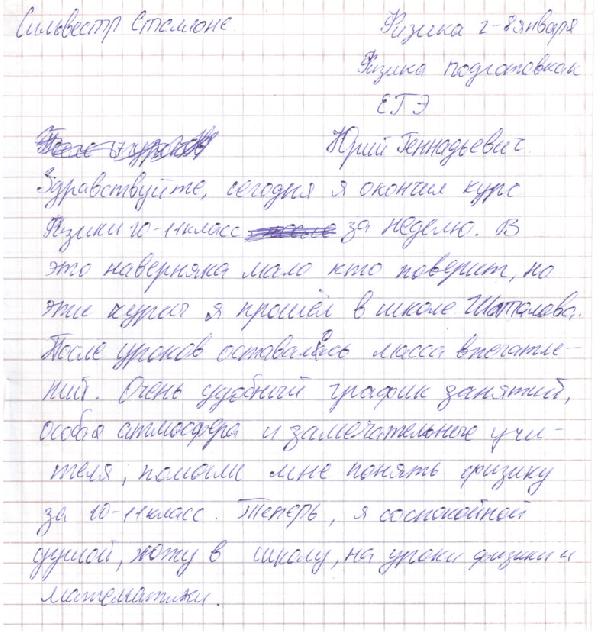 Сильвестр Сталлоне
Физика 2-8 января
Физика подготовка к
ЕГЭ
Юрий Геннадьевич.
Здравствуйте, сегодня я окончил курс
Физики 10-11 класс за неделю. В
это наверняка мало кто поверит, но
эти курсы я прошёл в школе Шаталова.
После уроков оставалось масса впечатле-
ний. Очень удобный график занятий,
особая атмосфера и замечательные учи-
теля, помогли мне понять физику
за 10-11 класс. Теперь, я со спокойной
душой, хожу в школу, на уроки физики и
математики.